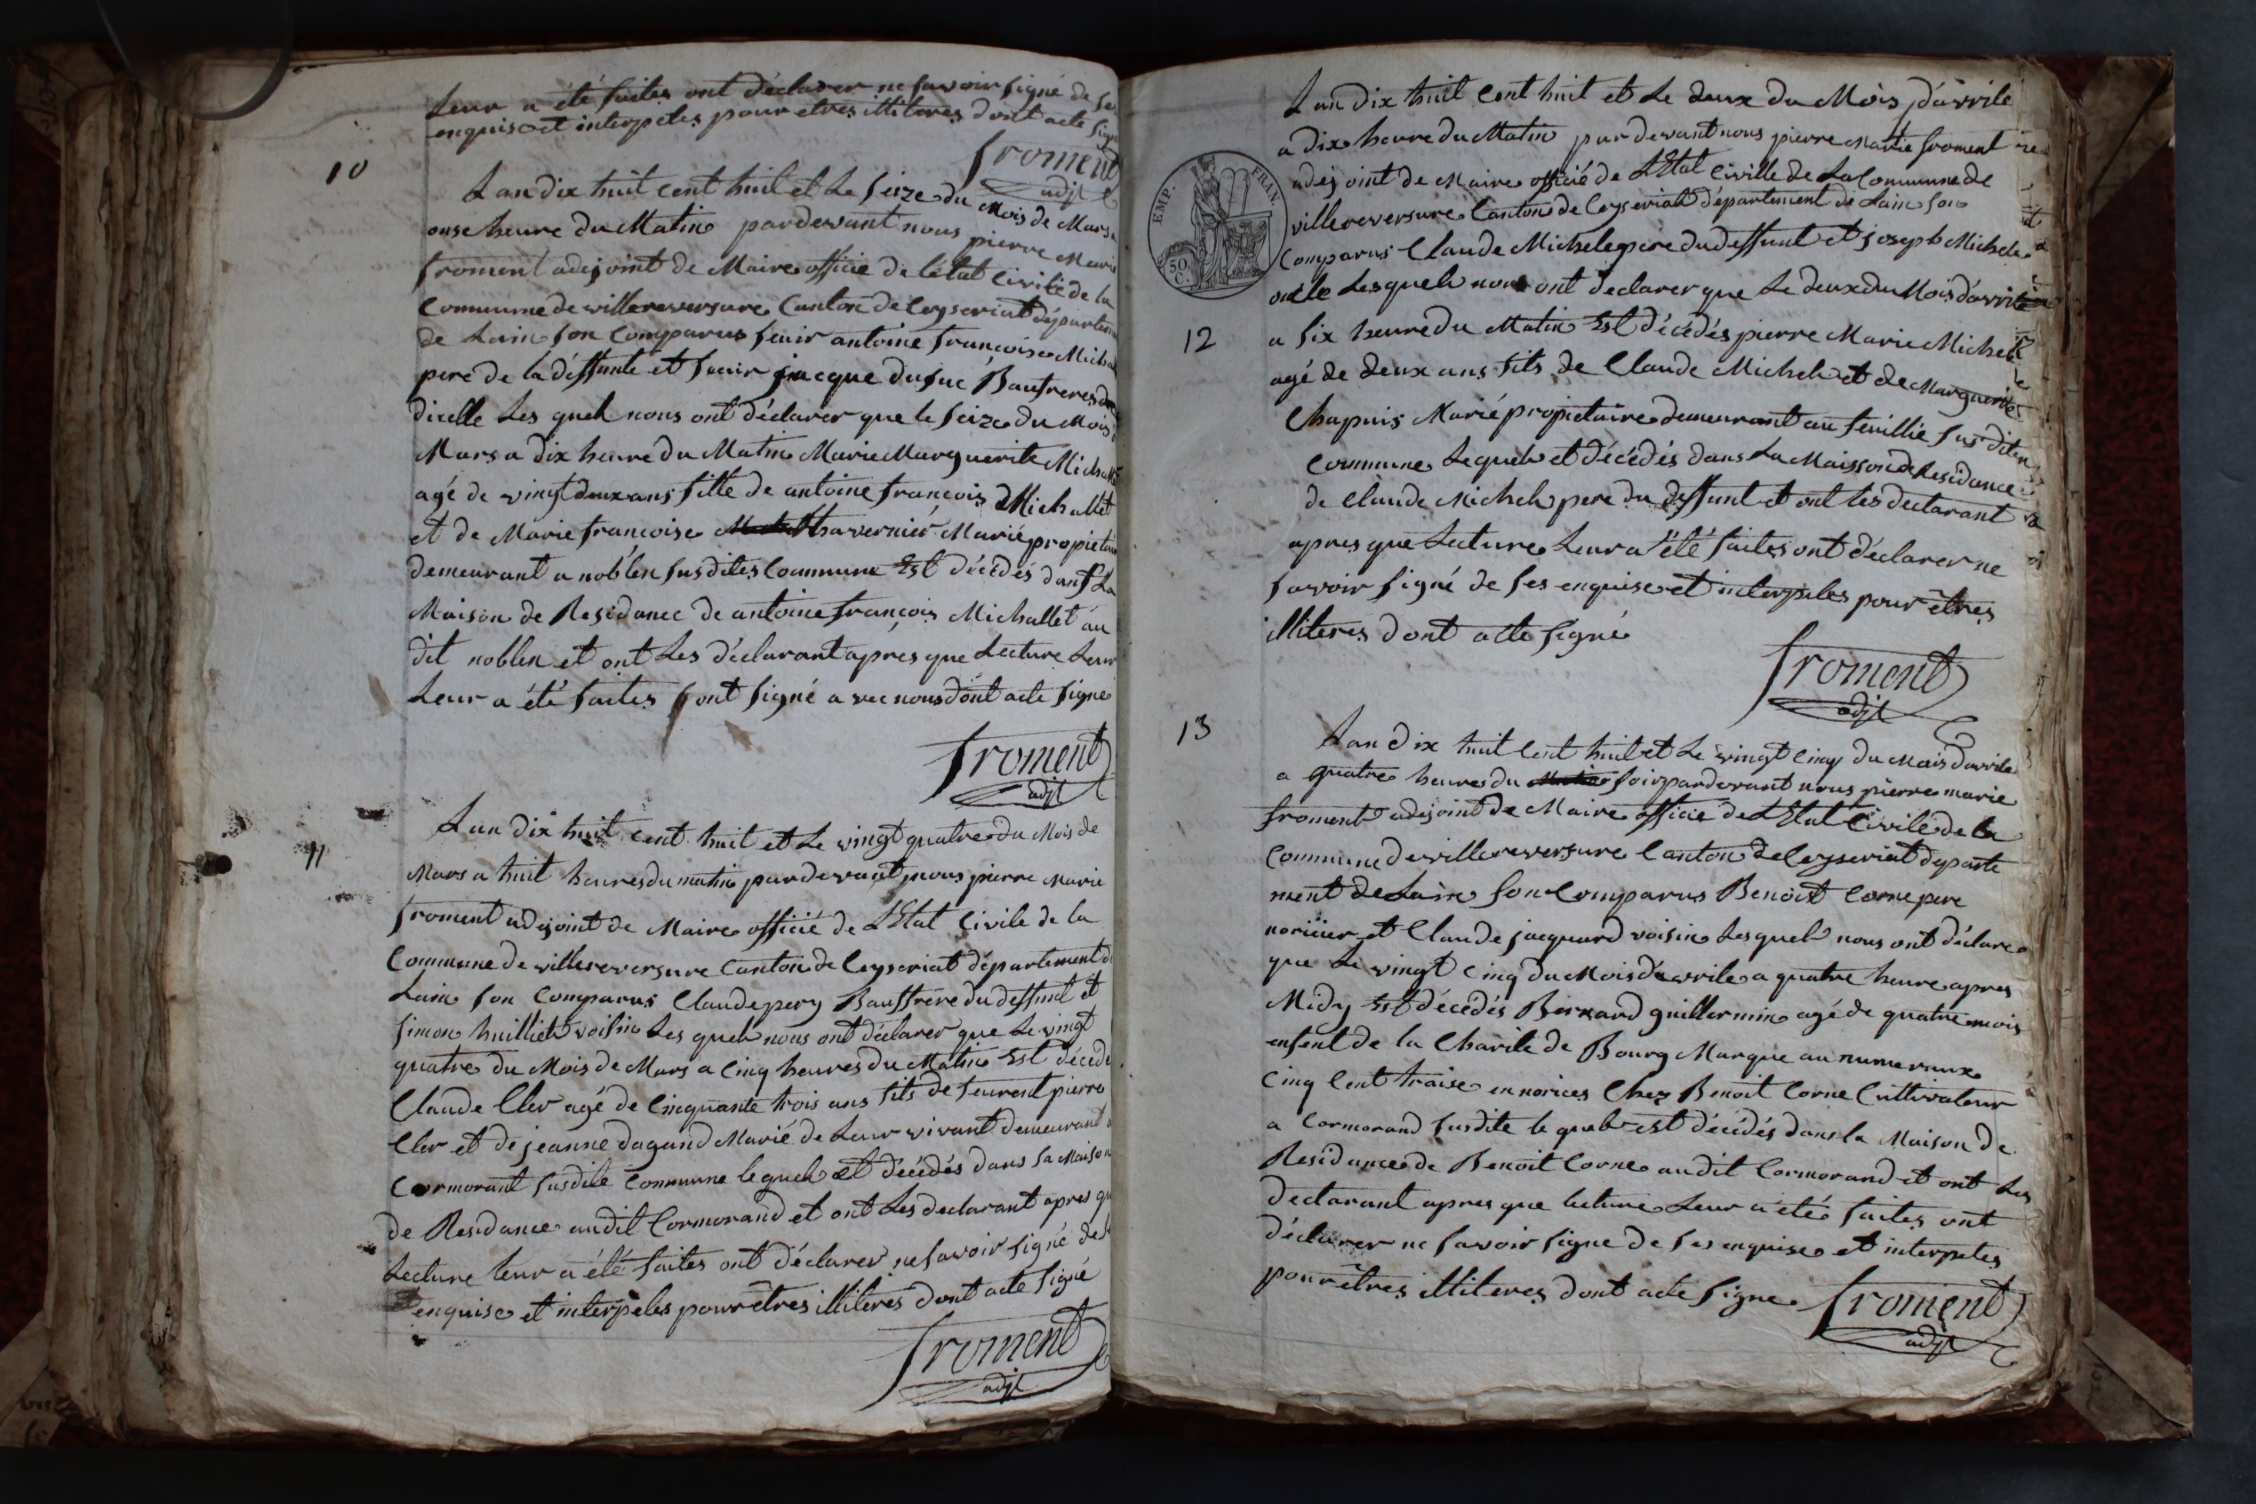 Leur a été faites ont déclarer ne savoir signé de se
enquise et interpeles pour etres illiteres dont acte signe
froment
adjt
10
Lan dix huit cent huit et Le seize du Mois de Mars a
onse heure du Matin pardevant nous pierre Marie
froment adejoint de Maire officié de l'etat Civile de la
Commune de villereversure Canton de Ceyseriat départeme
de Lain son Comparus antoine françoise Micha
pere de la déffunte et jacque dufuc Bautreres de
dicelle Les quel nous ont déclarer que le seize du Mois
Mars a dix heure du Matin Marie Marguerite Michallet
agé de vingt deux ans fille de antoine françois Michallet
et de Marie françoise thavernier Marié propietaire
demeurant a noblen susdites Commune Est décédés dans La
Maison de Residance de antoine françois Michallet au
dit noblen et ont Les déclarant apres que Lecture Leur
Leur a été faites sont signé avec nous dont acte signe
froment
adjt
11
Lan dix huit cent huit et Le vingt quatre du Mois de
Mars a huit heures du matin pardevant nous pierre Marie
froment adejoint de Maire officié de L'Etat Civile de la
Commune de villereversure Canton de Ceyseriat département de
Lain son Comparus Claude pery Bauffrere du deffunt et
simon huillier voisin Les quel nous ont déclarer que Le vingt
quatre du Mois de Mars a Cinq heures du Matin Est décédé
Claude Cler agé de Cinquante trois ans fils de pierre
Cler et de jeanne dagand Marié de Leur vivant demeurant a
Cormorant susdite Commune lequel et décédés dans sa Maison
de Residance audit Cormorand et ont Les declarant apres que
Lecture leur a été faites ont déclarer ne savoir signé de
enquise et interpeles pour êtres illiteres dont acte signé
froment
adjt
Lan Dix huit Cent huit et Le deux du Mois d'avrile
a Dix heure du Matin par devant nous pierre Marie froment
adejoint de Maire officié de L'Etat Civille de La Commune de
villereversure Canton de Ceyseriat département de Lain son
EMP. FRAN.
50 C.
Comparus Claude Michel pere du deffunt et joseph Michel
oncle Lesquel nous ont declarer que Le deux du Mois d'avrile
12
a six heure du Matin Est décédés pierre Marie Michel
agé de deux ans fils de Claude Michel et de Marguerite
Chapuis Marié propietaire demeurant au feuillie susdite
Commune Lequel et décédés dans La Maisson de Residance
de Claude Michel pere du deffunt et ont les declarant
apres que Lecture Leur a été faites ont déclarer ne
savoir signé de ses enquise et interpeles pour êtres
illiteres dont acte signé
froment
adjt
13
Lan dix huit Cent huit et Le vingt Cinq du Mois d'avrile
a quatre heures du soir pardevant nous pierre marie
froment adejoint de Maire officié de L'Etat Civile de la
Commune de villereversure Canton de Ceyseriat departe
ment de Lain son Comparus Benoit Corne pere
noricier et Claude jacquard voisin Lesquel nous ont déclare
que Le vingt Cinq du Mois d'avrile a quatre heure apres
Midy Est décédés Bernard guillermin agé de quatre mois
enfent de la Charite de Bourg Marque au numeraux
Cinq Cent traise en norices Chez Benoit Corne Cultivateur
a Cormorand susdite le quel est décédés dans la Maison de
Residance de Benoit Corne audit Cormorand et ont Les
declarant apres que lecture Leur a été faites ont
déclarer ne savoir signe de ses enquise et interpeles
pour êtres illiteres dont acte signe
froment
adjt